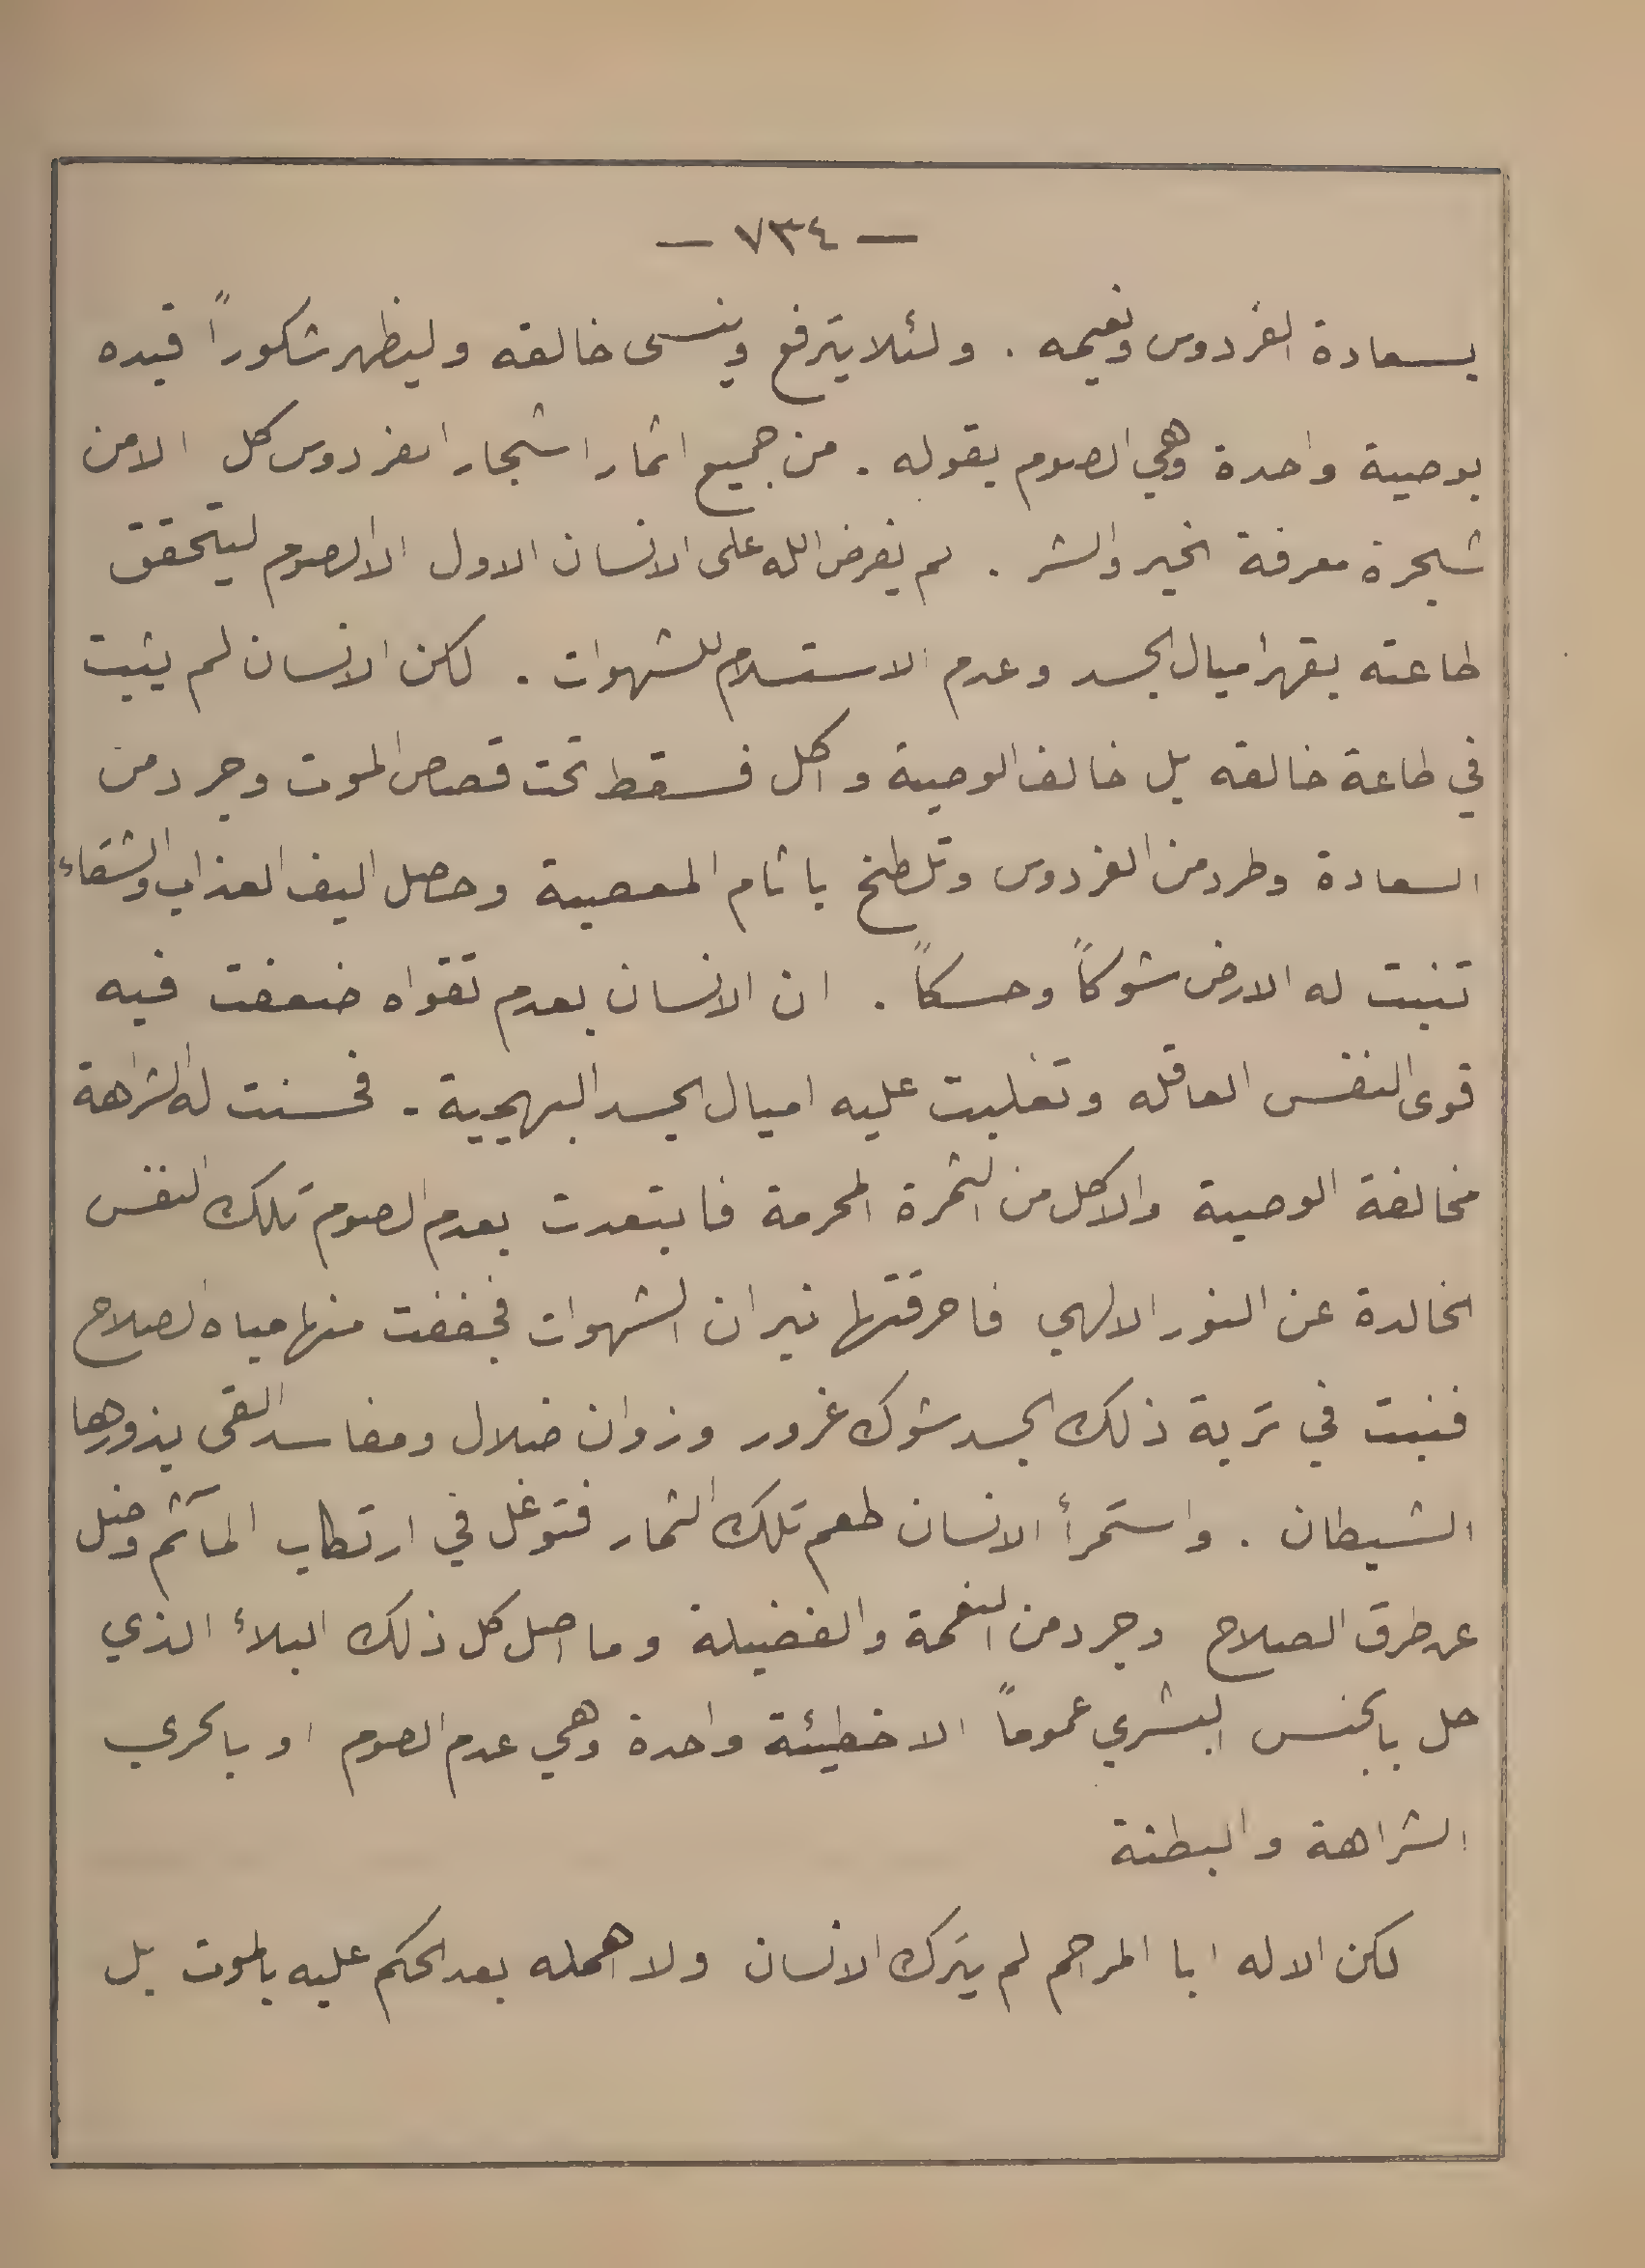 — ٧٣٤ —
بسعادة الفردوس ونعيمه . ولئلا يترفع وينسى خالقه وليظهر شكوراً قيده
بوصية واحدة وهي الصوم بقوله . من جميع اثمار اشجار الفردوس كل الا من
شجرة معرفة الخير والشر . لم يفرض الله على الانسان الاول الا الصوم ليتحقق
طاعته بقهر اميال الجسد وعدم الاستسلام للشهوات . لكن الانسان لم يثبت
في طاعة خالقه بل خالف الوصية واكل فسقط تحت قصص الموت وجرد من
السعادة وطرد من الفردوس وتلطخ باثام المعصية وحصل اليف العذاب والشقاء
تنبت له الارض شوكاً وحسكاً . ان الانسان بعدم تقواه ضعفت فيه
قوى النفس العاقله وتغلبت عليه اميال الجسد البهيمية . فحسنت له الشراهة
مخالفة الوصية والاكل من الثمرة المحرمة فابتعدت بعدم الصوم تلك النفس
الخالدة عن النور الالهي فاحرقتها نيران الشهوات فجففت منها مياه الصلاح
فنبت في تربة ذلك الجسد شوك غرور وزوان ضلال ومفاسد القى بذورها
الشيطان . واستمرأ الانسان طعم تلك الثمار فتوغل في ارتكاب المآثم وضل
عن طرق الصلاح وجرد من النعمة والفضيلة وما اصل كل ذلك البلاء الذي
حل بالجنس البشري عموماً الا خطيئة واحدة وهي عدم الصوم او بالحري
الشراهة والبطنة
لكن الاله ابا المراحم لم يترك الانسان ولا اهمله بعد الحكم عليه بالموت بل